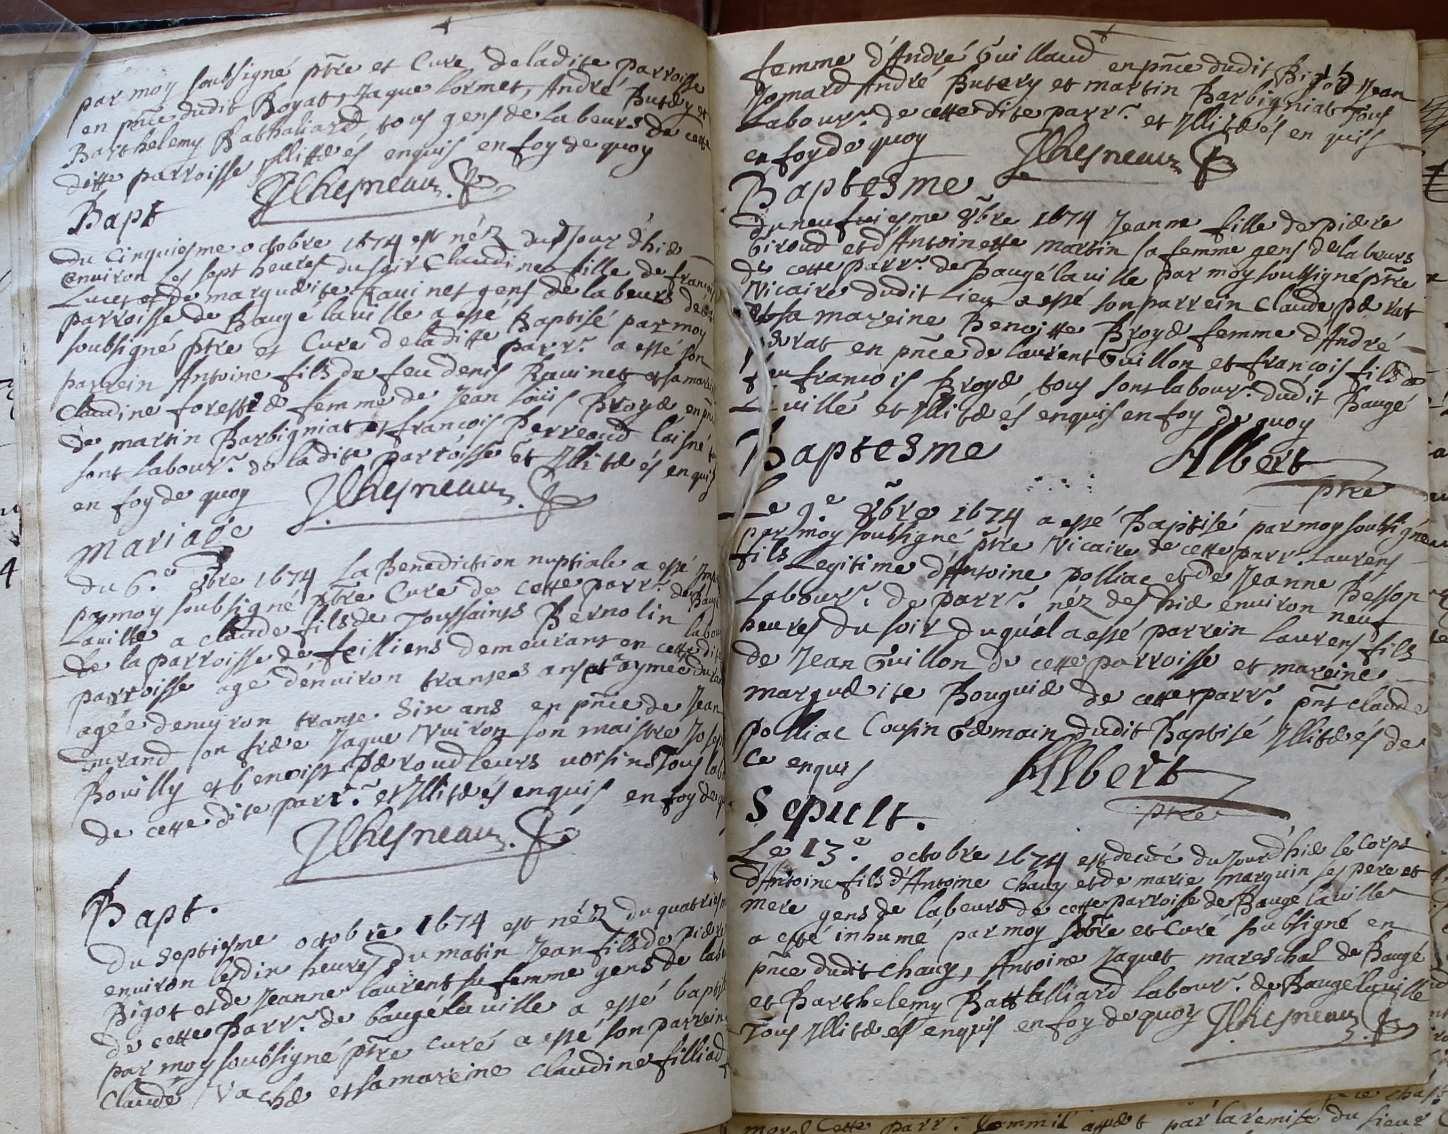 par moy soubsigné ptre et Curé de ladite parroisse
en pnce dudit Boyat, Jaque Cormet, André Butery et
Barthelemy Bathaliard tous gens de labeurs de cette
ditte parroisse Illittes enquis en foy de quoy
JChesneau
Bapt
du Cinquiesme octobre 1674 est néz du Jour d'hié
environ les sept heures du soir Claudine fille de francois
Lucet et de marguerite Ravinet gens de labeurs de
parroisse de Baugé la ville a esté Baptisé par moy
soubsigné ptre et Curé de laditte parr. a esté son
parrein Antoine fils de feu denis Ravinet et sa mareine
Claudine forest femme de Jean Louis Broye en pnce
de martin Barbigniat et francois Perreaud laisné
sont labour. de ladite parroisse et Illités enquis
en foy de quoy JChesneau
Mariage
du 6.e 8bre 1674 La Benediction nuptiale a esté
par moy soubsigné ptre Curé de cette parr. de Baugé
Laville a claude fils de Toussaints Bernolin labour
de la parroisse de feilliens demeurant en cette dite
parroisse agé d'environ transes ans et aymee du
agée d'environ transe sin ans en pnce de Jean
durand son frere Jaque Vuiron son maistre Joseph
Bouilly et benoist Peroud leurs voisins Tous labour
de cette dite parr. et Illités enquis en foy de
JChesneau
Bapt.
du septiesme octobre 1674 est néz du quatriesme
environ les din heures du matin Jean fils de Piere
Bigot et de Jeanne laurent sa femme gens de labeurs
de cette Parr. de baugé la ville a esté baptisé
par moy soubsigné ptre curé a esté son parrein
Claude Vaché et sa mareine claudine filliad
femme d'André Guillaud en pnce dudit Bigot Jean
Jomard André Butery et martin Barbigniat Tous
Labour. de cette dite parr. et Illités en quis
en foy de quoy JChesneau
Baptesme
du neufviesme 8bre 1674 Jeanne fille de Piere
Giroud et d'Antoinette martin sa femme gens de labeurs
de cette parr. de baugé la ville par moy soubsigné ptre
Vicaire dudit lieu a esté son parrein Claude Perat
et sa mareine Benoitte Broye femme d'André
Perat en pnce de laurent Guillon et francois fils de
feu francois Broye tous sont labour. dudit Baugé
Laville et Illités enquis en foy de quoy
Albert
ptre
Baptesme
Le 9.e 8bre 1674 a esté Baptisé par moy soubsigné
par moy soubsigné ptre Vicaire de cette parr. Laurens
fils Legitime d'Antoine polliac et de Jeanne besson
Labour. de parr. néz des hié environ neuf
heures du soir duquel a esté parrein laurens fils
de Jean Guillon de cette parroisse et mareine
marguerite Bouguie de cette parr. pnt claude
polliac Cousin Germain dudit Baptisé Illités de
ce enquis
Albert
ptre
Sepult.
Le 13.e octobre 1674 est decédé du Jourd'hié le Corps
d'Antoine fils d'Antoine Chany et de marie marguin ses pere et
mere gens de labeurs de cette parroisse de Baugé laville
a esté inhumé par moy ptre et Curé subsigné en
pnce dudit Chany, Antoine Jaquet mareschal de Baugé
et Barthelemy Battalliard labour. de Baugé laville
Tous Illités enquis en foy de quoy JChesneau
cette parr. Commil par la remise du sieur